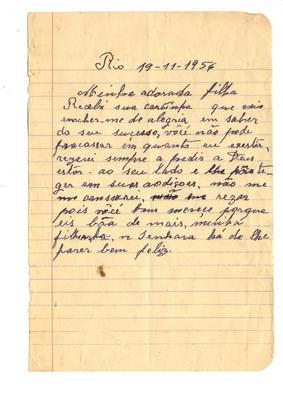 Rio 19-11-1956
Minha adorada filha
Recebi sua cartinha que veio
encher-me de alegria em saber
do seu sucesso, você não pode
fracassar em quanto eu existir,
rezarei sempre a pedir a Deus
estar ao seu lado e lhe prote
ger em suas adições, não me
cansarei, rezar
pois você bem merece porque
eis bôa de mais, minha
filhinha, n Senhora há de lhe
fazer bem feliz.